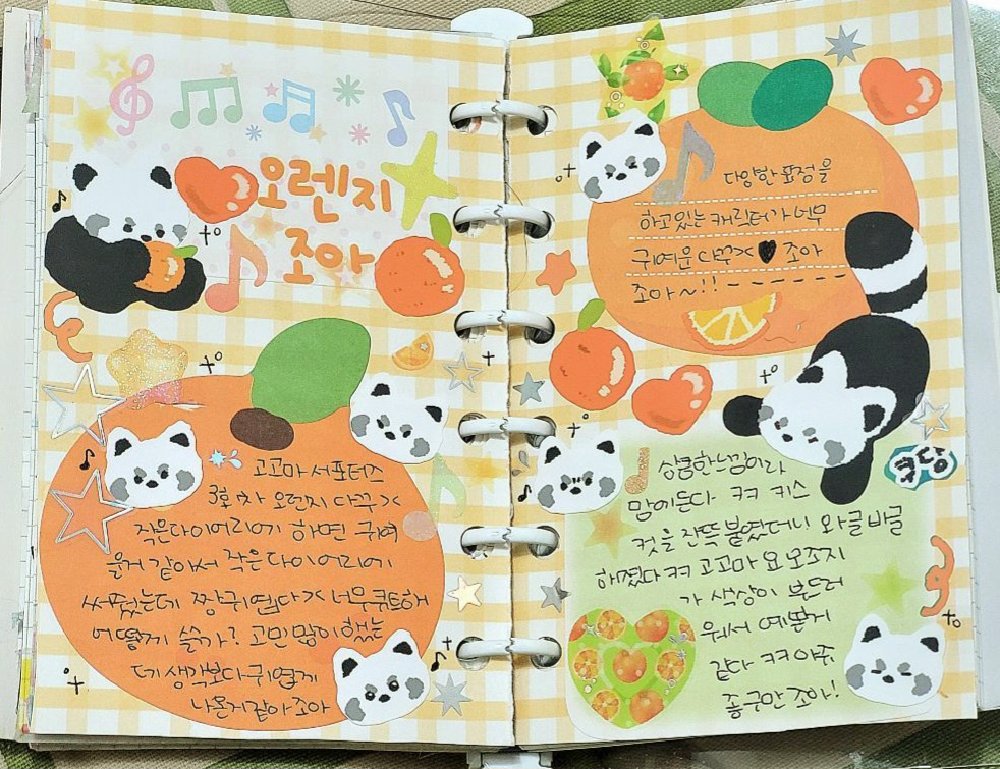 오렌지
조아
고고마 서포터즈
3회차 오렌지 다꾸 ><
작은다이어리에 하면 귀여
울거 같아서 작은다이어리에
써봤는데 짱귀엽다>< 너무큐트해
어떻게 쓸까? 고민많이했는
데생각보다귀엽게
나온거같아조아
다양한 표정을
하고있는캐릭터가너무
귀여운 다꾸>< ♥ 조아
조아~!!
상큼한느낌이라
맘에든다 ㅋㅋ 키스
컷을 잔뜩붙였더니 와글바글
해졌다ㅋㅋ 고고마 요 모조지
가 색상이 부드러
워서 예쁜게
같다 ㅋㅋ 아주
좋구만 조아!
쿠당